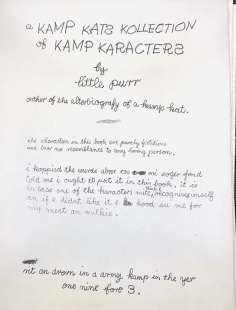 a KAMP KATS KOLLECTION
of KAMP KARACTERS
by
little purr
orther of the orterbiografy of a kamp kat.
the characters in this book are purely fictitious
and bear no resemblance to any living person.
i koppied the words above cos mi soger frend
told me i ought ter put it in this book. it is
in case one of the karacters mite recognise imself
an if e didnt like it e kood sue me for
my meet an milkie.
rit an drorn in a army kamp in the yer
one nine fore 3.